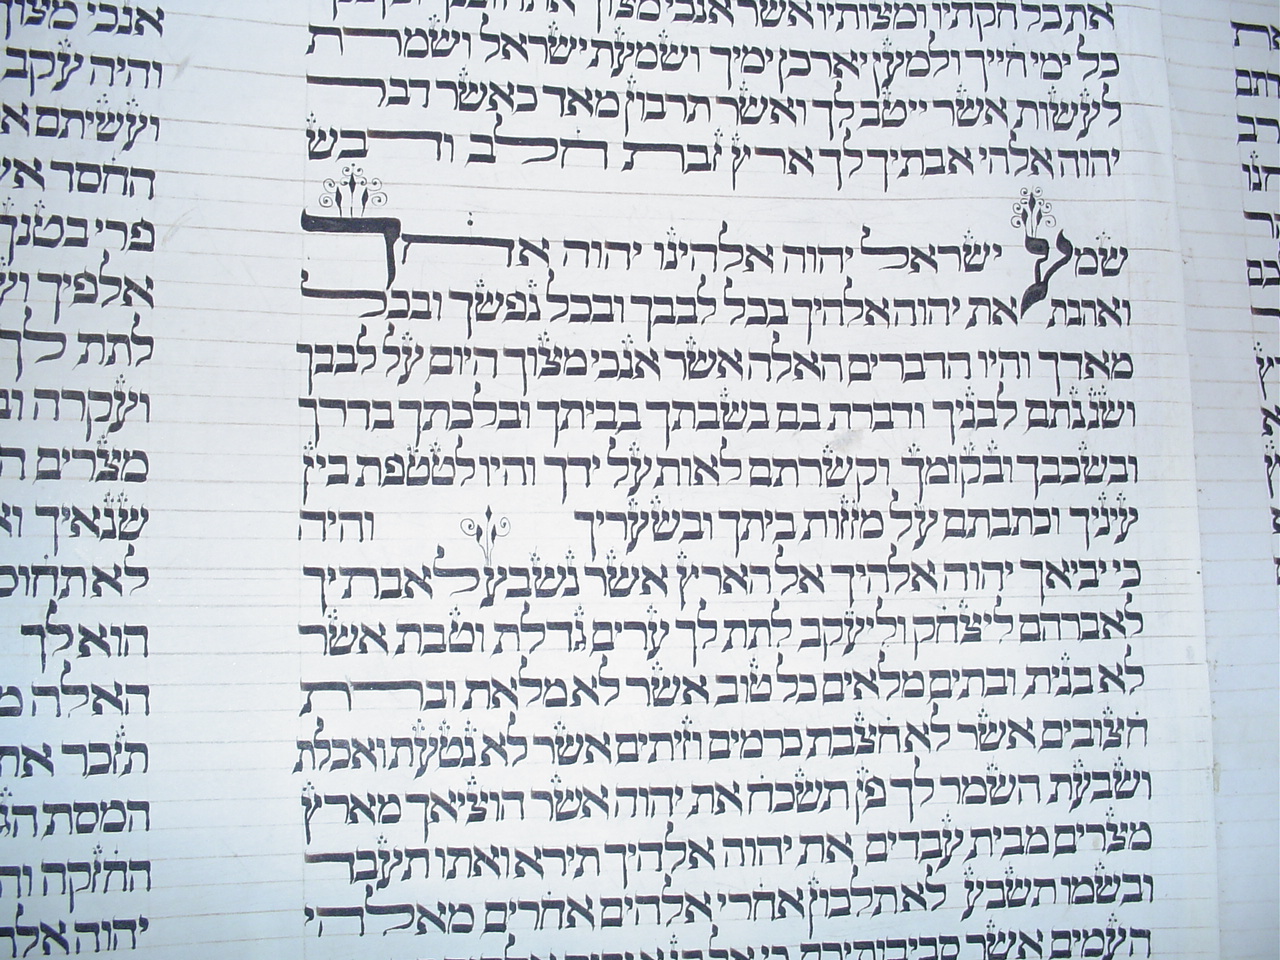 את כל חקתיו ומצותיו אשר אנכי מצוך
כל ימי חייך ולמען יארכן ימיך ושמעת ישראל ושמרת
לעשות אשר ייטב לך ואשר תרבון מאד כאשר דבר
יהוה אלהי אבתיך לך ארץ זבת חלב ודבש
שמע ישראל יהוה אלהינו יהוה אחד
ואהבת את יהוה אלהיך בכל לבבך ובכל נפשך ובכל
מאדך והיו הדברים האלה אשר אנכי מצוך היום על לבבך
ושננתם לבניך ודברת בם בשבתך בביתך ובלכתך בדרך
ובשכבך ובקומך וקשרתם לאות על ידך והיו לטטפת בין
עיניך וכתבתם על מזזות ביתך ובשעריך והיה
כי יביאך יהוה אלהיך אל הארץ אשר נשבע לאבתיך
לאברהם ליצחק וליעקב לתת לך ערים גדלת וטבת אשר
לא בנית ובתים מלאים כל טוב אשר לא מלאת וברת
חצובים אשר לא חצבת כרמים וזיתים אשר לא נטעת ואכלת
ושבעת השמר לך פן תשכח את יהוה אשר הוציאך מארץ
מצרים מבית עבדים את יהוה אלהיך תירא ואתו תעבד
ובשמו תשבע לא תלכון אחרי אלהים אחרים מאלהי
העמים אשר סביבותיכם כי אל
אנכי מצוך
והיה עקב
ועשיתם
החסד
פרי בטנך
אלפיך
לתת לך
ועקרה
מצרים
שנאיך
לא תחוס
הוא לך
האלה
תזכר את
המסת
החזקה
יהוה